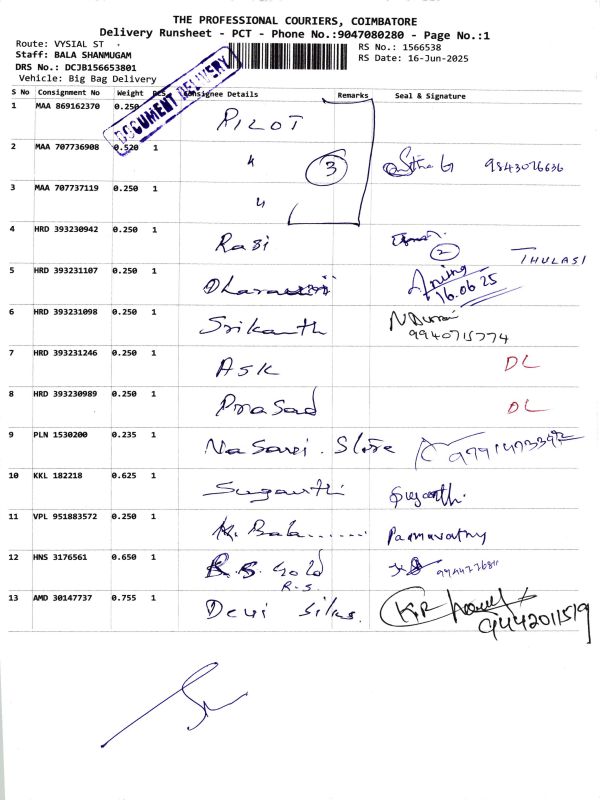 THE PROFESSIONAL COURIERS, COIMBATORE
Delivery Runsheet - PCT - Phone No.:9047080280 - Page No.:1
Route: VYSIAL ST
Staff: BALA SHANMUGAM
DRS No.: DCJB156653801
Vehicle: Big Bag Delivery
RS No.: 1566538
RS Date: 16-Jun-2025
DOCUMENT DELIVERY
S No Consignment No Weight PCS Consignee Details Remarks Seal & Signature
1 MAA 869162370 0.250 PILOT
2 MAA 707736908 0.520 1 " 3 9843026636
3 MAA 707737119 0.250 1 "
4 HRD 393230942 0.250 1 Rabi 2 THULASI
5 HRD 393231107 0.250 1 16.06 25
6 HRD 393231098 0.250 1 Srikanth 9940715774
7 HRD 393231246 0.250 1 ASK DL
8 HRD 393230989 0.250 1 Prasad DL
9 PLN 1530200 0.235 1 Store
10 KKL 182218 0.625 1 Suganthi
11 VPL 951883572 0.250 1 K. Bala....... Padmavathy
12 HNS 3176561 0.650 1 R.S. Gold
R.S.
13 AMD 30147737 0.755 1 Devi Silks. KR
9442011519